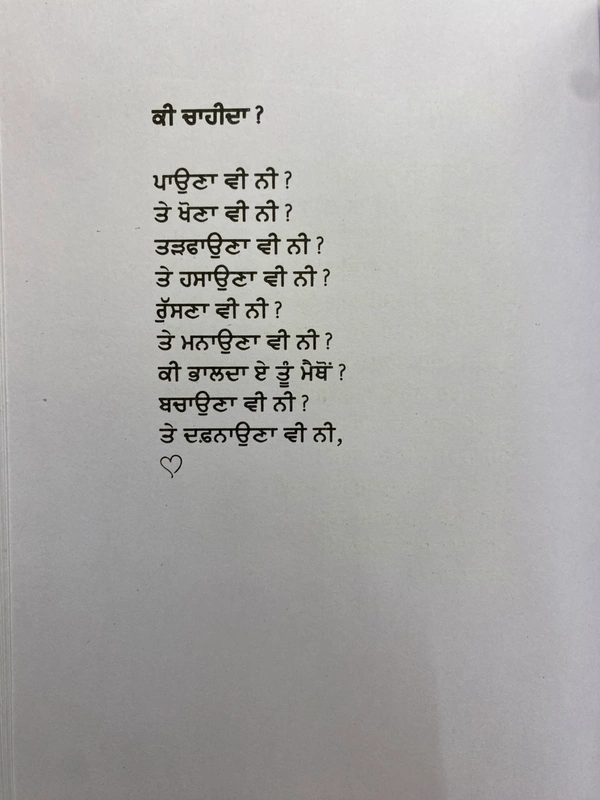 ਕੀ ਚਾਹੀਦਾ ?
ਪਾਉਣਾ ਵੀ ਨੀ ?
ਤੇ ਖੋਣਾ ਵੀ ਨੀ ?
ਤੜਫਾਉਣਾ ਵੀ ਨੀ ?
ਤੇ ਹਸਾਉਣਾ ਵੀ ਨੀ ?
ਰੁੱਸਣਾ ਵੀ ਨੀ ?
ਤੇ ਮਨਾਉਣਾ ਵੀ ਨੀ ?
ਕੀ ਭਾਲਦਾ ਏ ਤੂੰ ਮੈਥੋਂ ?
ਬਚਾਉਣਾ ਵੀ ਨੀ ?
ਤੇ ਦਫ਼ਨਾਉਣਾ ਵੀ ਨੀ,
♡